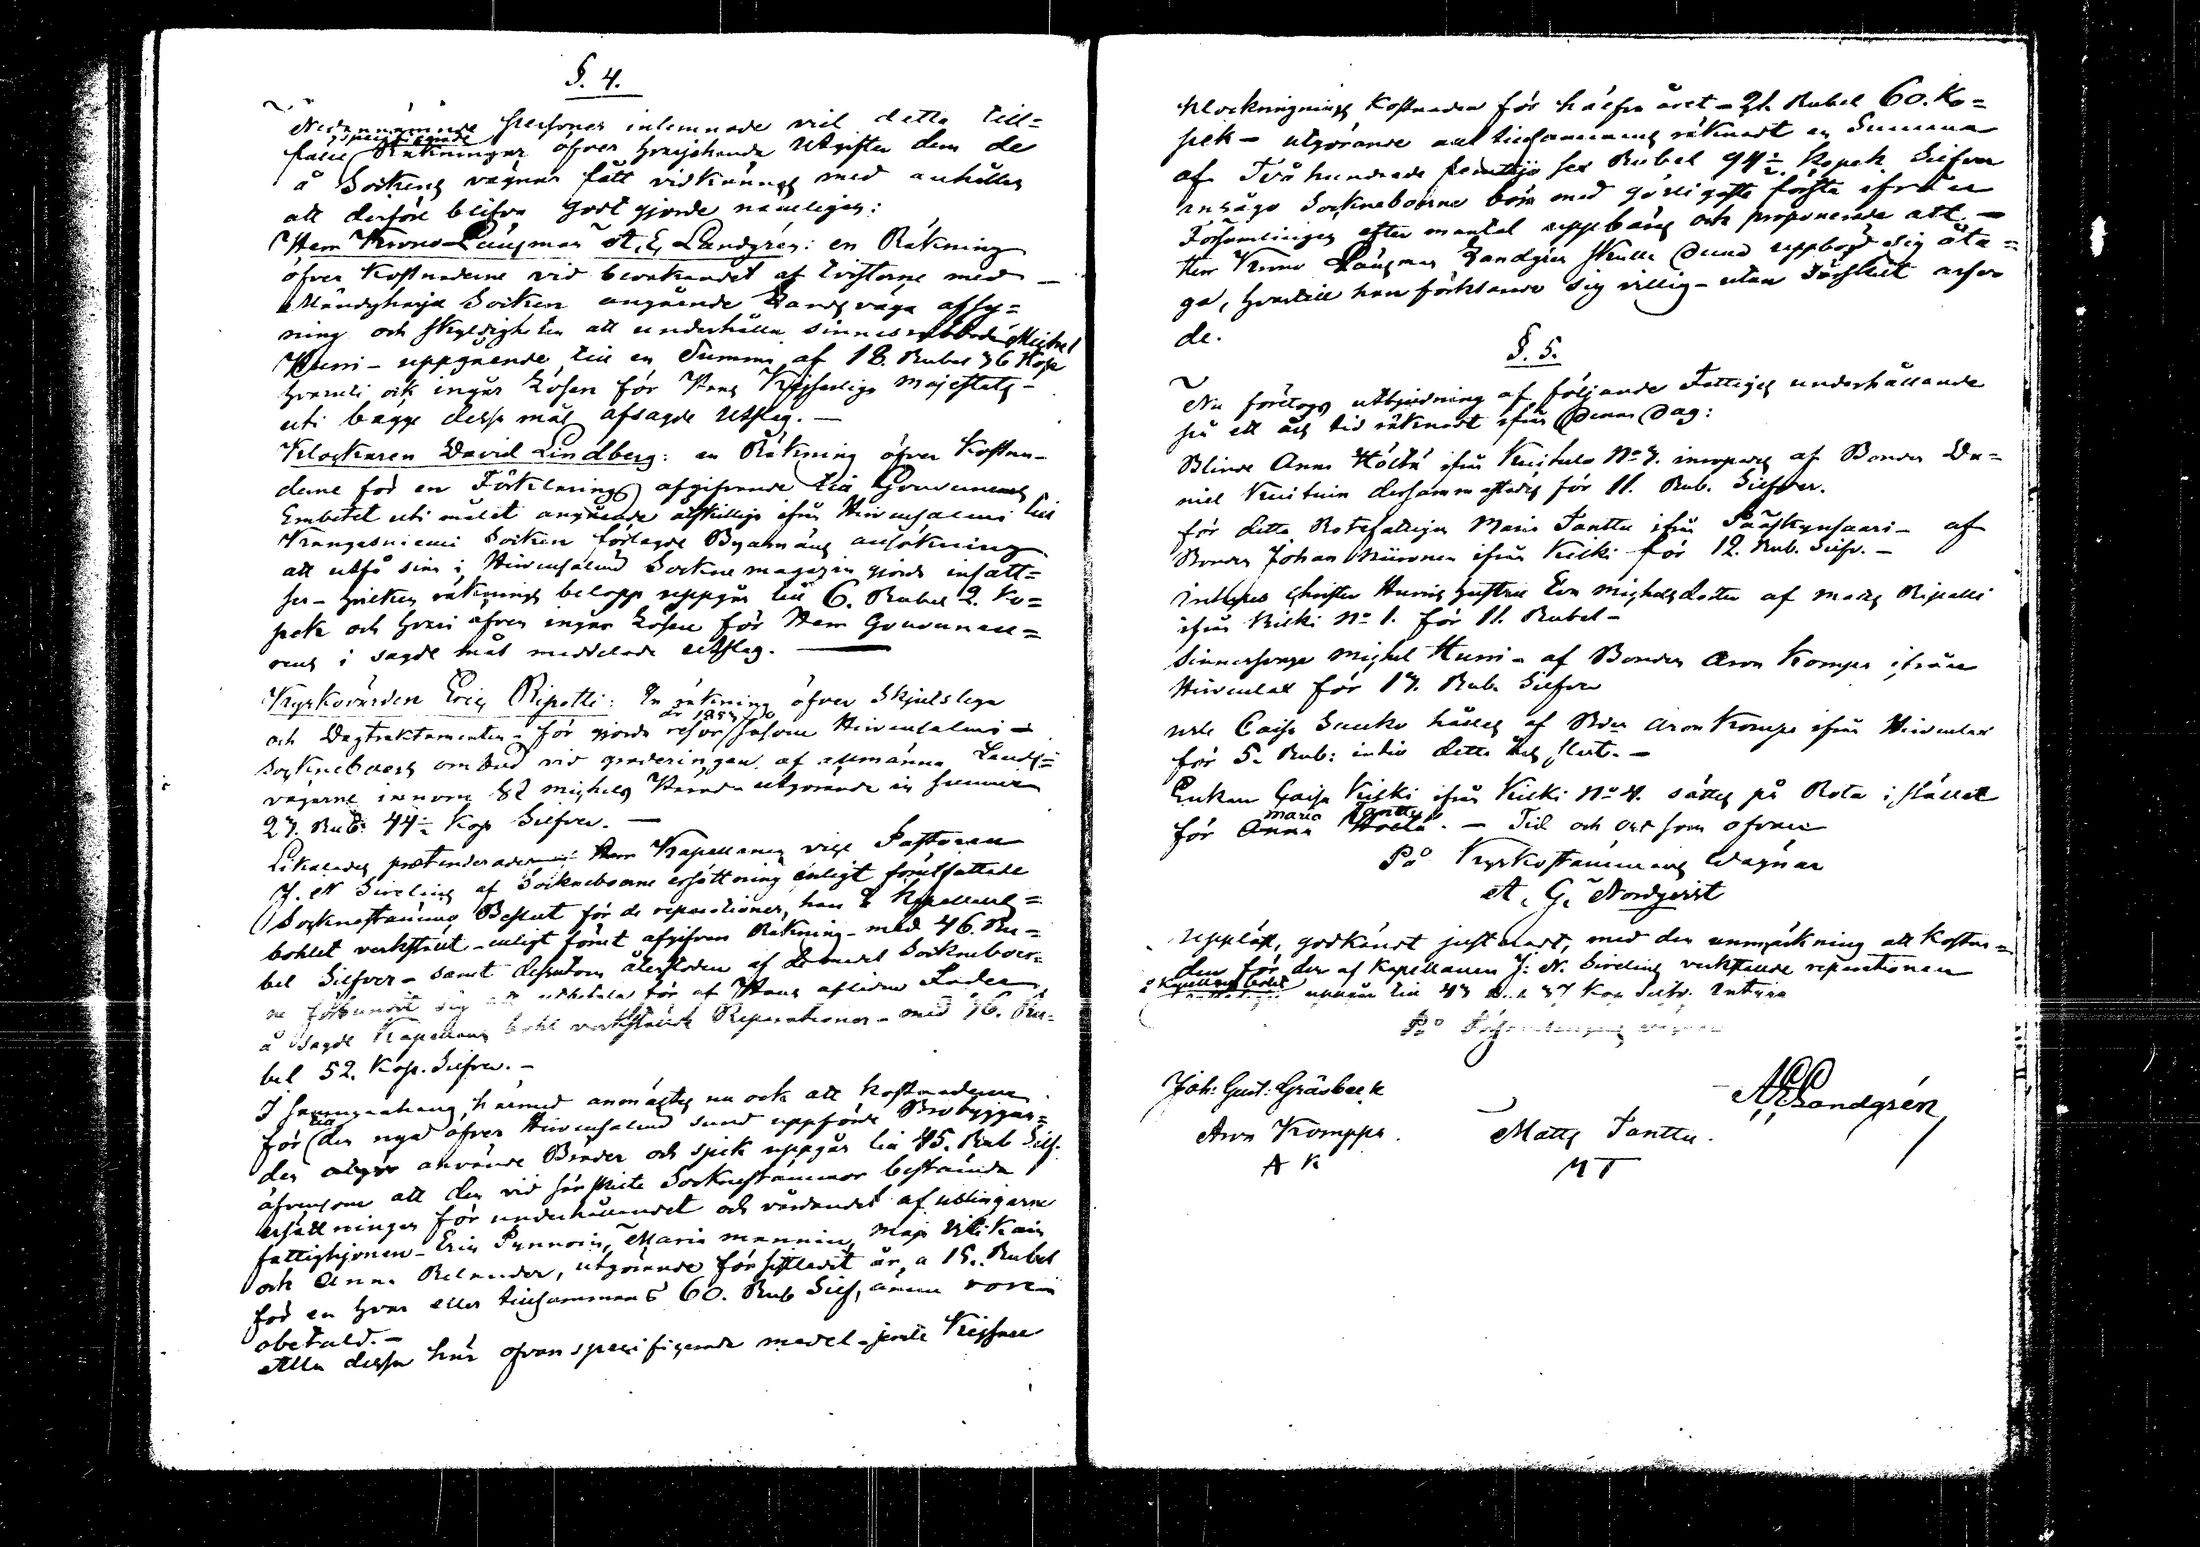 §. 4.
Nedannämnde personer inlemnade vid detta till=
fälle specificerade Räkningar öfver hvarjehanda Utgifter dem de
å Sockens vägnar fått vidkännas med anhållan
att derföre blifva godtgjorde nämeligen:
Herr Krono-Länsman A. E. Landgrén: en Räkning
öfver Kostnaderne vid bevakandet af tvisterne med
Mändyharju Socken angående Landsväga afsy=
ning och skyldigheten att underhålla sinnessvage Michel
Hurri - uppgående till en Summa af 18. Rubel 36 Kop
hvaruti ock ingår Lösen för Hans Kejserliga Majestäts-
uti bägge dessa mål afsagde Utslag. —
Klockaren David Lindberg: en Räkning öfver Kostna-
derne för en Förklarings afgifvande till Gouvernements
Embetet uti målet angående åtskillige ifrån Hirvensalmi till
Kangasniemi Socken förlagde Byamäns ansökning
att utfå sine i Hirvensalmi Sockne magazin gjorde insatt=
ser - hvilken räknings belopp uppgår till 6. Rubel 2. Ko=
pek och hvari äfven ingår Lösen för Herr Gouverneu=
rens i sagde mål meddelade Utslag. —
Kyrkovärden Eric Ripatti: En räkning öfver Skjutslega
och Dagtraktamenten - för gjorde resor år 1857 såsom Hirvensalmi -
Socknebors ombud vid graderingen af allmänna Lands=
vägarne innom St Michels Härad - utgörande en summa
27. Rub: 44½ Kop Silfver. —
Likaledes prætenderade Herr Kapellanen vice Pastoren
J. N. Sireling af Sockneboerne ersättning enligt förutfattade
Socknestämmo Beslut för de reparationer, han å Kapellans=
bohlet verkstält - enligt förut afgifven Räkning - med 46. Ru=
bel Silfver - samt dessutom återstoden af de medel Sockneboer=
ne förbundit sig att utbetala för af Hans aflidne Fader
å sagde Kapellans bohl verkstälde Reparationer - med 36. Ru=
bel 52. Kop. Silfver. —
I sammanhang härmed anmältes nu ock att kostnaderne
för till den nya öfver Hirvensalmi sund uppförde Brobyggna=
den använde Bräder och spik uppgår till 45. Rub Silf.
äfvensom att den vid särskilte Socknestämmor bestämda
ersättningen för underhållandet och vårdandet af uslingarne
fattighjonen - Eric Pynnöin, Maria Mannin, Maja Vilikain
och Anna Relander, utgörande för sistledit år, a 15. Rubel
för en hvar eller tillsammans 60. Rub Silf, ännu vore
obetald. —
Alla dessa här ofvan specificerade medel - jemte Kejsare
klockringnings kostnaden för halfva året - 21. Rubel 60. Ko=
pek - utgörande allt tillsammans räknadt en Summa
af Två hundrade femtijo sex Rubel 94½ kopek Silfver
ansågo Socknebo​erne böra med görligaste första ifrån
Församlingen efter mantal uppbäras och proponerade att —
Herr Krono Länsman Landgrén skulle denna uppbörd sig åta=
ga, hvartill han förklarade sig villig - utan Förskott arfvo
de.
§. 5.
Nu företogs utbjudning af följande Fattiges underhållande
på ett års tid räknadt ifrån Denna Dag:
Blinde Anna Höltä ifrån Kuitula No 7. inropades af Bonden Da=
niel Kuitunin dersammastädes för 11. Rub. Silfver.
för detta Rotefattigen Maria Tanttu ifrån Pääskynsaari - af
Bonden Johan Niironen ifrån Kilki för 12. Rub. Silfv. —
Inhyses Christer Hurris hustru Eva Michelsdotter af Matts Ripatti
ifrån Kilki No 1. för 11. Rubel —
Sinnessvage Michel Hurri - af Bonden Aron Komppa ifrån
Hirvenlax för 17. Rub. Silfver
usle Caisa Sauko hålles af Bon Aron Komppa ifrån Hirvenlax
för 5. Rub: intill detta års slut. —
Enkan Caisa Kilki ifrån Kilki No 4. sättes på Rota i stället
för Anna Höltä Maria Tanttu. — Tid och ort som ofvan
På Kyrkostämmans Vägnar
A. G. Nordqvist
Uppläst, godkändt justeradt, med den anmärkning att kostna=
den för den af Kapellanen J: N. Sireling verkstälde reparationen
å Kapellans bohlet uppgår till 43 Rub 37 Kop Silfv. Intyga
På Församlingens vägnar
Joh: Gust: Gråsbeck
A E Landgrén
Aron Komppa.
Matts Tanttu.
A K
M T